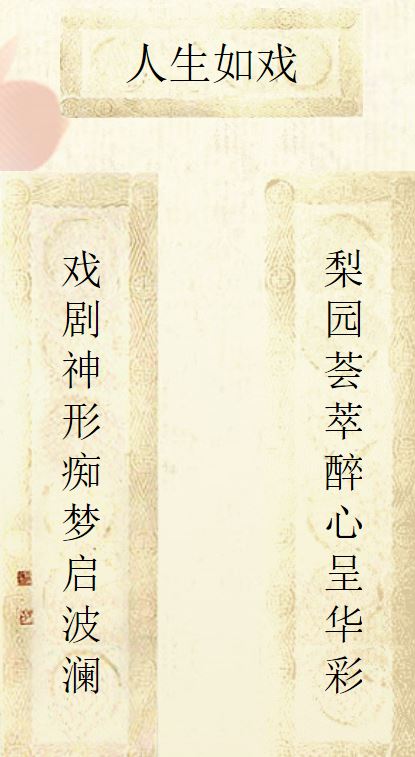 人生如戏
梨园荟萃醉心呈华彩
戏剧神形痴梦启波澜